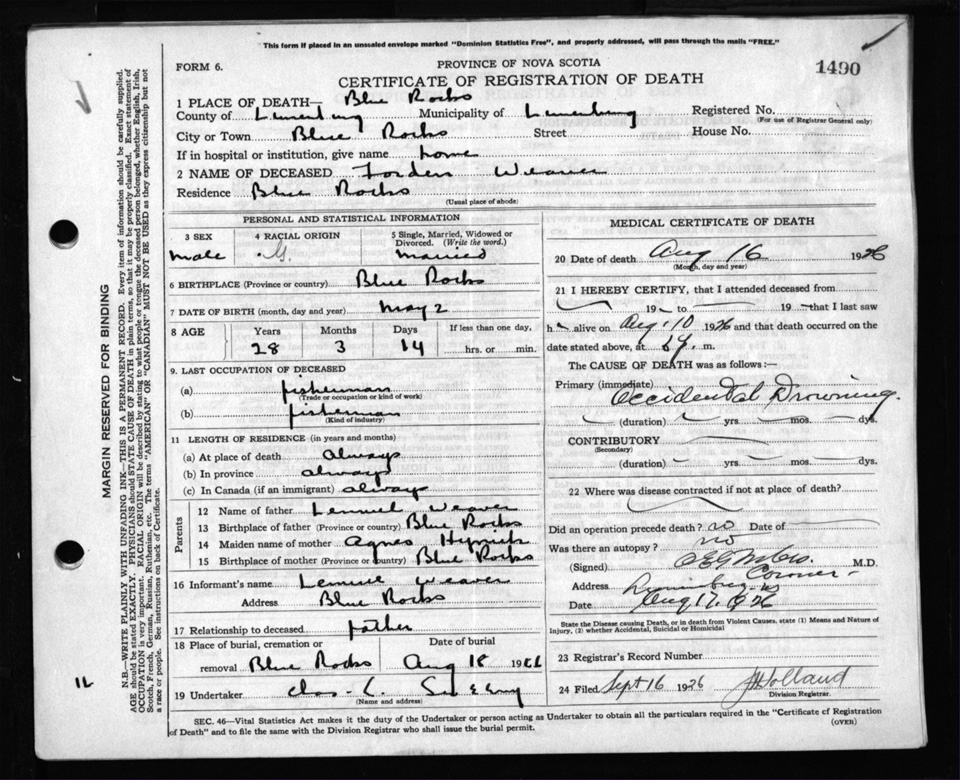 This form if placed in an unsealed envelope marked "Dominion Statistics Free", and properly addressed, will pass through the mails "FREE."
FORM 6.
PROVINCE OF NOVA SCOTIA
CERTIFICATE OF REGISTRATION OF DEATH
1490
1 PLACE OF DEATH— Blue Rocks
County of Lunenburg Municipality of Lunenburg Registered No.
(For use of Registrar General only)
City or Town Blue Rocks Street House No.
If in hospital or institution, give name home
2 NAME OF DECEASED Forden Weaver
Residence Blue Rocks
(Usual place of abode)
PERSONAL AND STATISTICAL INFORMATION
3 SEX 4 RACIAL ORIGIN 5 Single, Married, Widowed or Divorced. (Write the word.)
male G. married
6 BIRTHPLACE (Province or country) Blue Rocks
7 DATE OF BIRTH (month, day and year) May 2
8 AGE Years Months Days If less than one day,
28 3 14 hrs. or min.
9. LAST OCCUPATION OF DECEASED
(a) fisherman
(Trade or occupation or kind of work)
(b) fisherman
(Kind of industry)
11 LENGTH OF RESIDENCE (in years and months)
(a) At place of death always
(b) In province always
(c) In Canada (if an immigrant) always
Parents
12 Name of father Lemuel Weaver
13 Birthplace of father (Province or country) Blue Rocks
14 Maiden name of mother Agnes
15 Birthplace of mother (Province or country) Blue Rocks
16 Informant's name Lemuel Weaver
Address Blue Rocks
17 Relationship to deceased father
18 Place of burial, cremation or Date of burial
removal Blue Rocks Aug 18 19
19 Undertaker Chas. L.
(Name and address)
MEDICAL CERTIFICATE OF DEATH
20 Date of death Aug 16 1926
(Month, day and year)
21 I HEREBY CERTIFY, that I attended deceased from
19 to 19 that I last saw
h alive on Aug. 10 1926 and that death occurred on the
date stated above, at m.
The CAUSE OF DEATH was as follows:
Primary (immediate) Accidental Drowning.
(duration) yrs. mos. dys.
CONTRIBUTORY
(Secondary)
(duration) yrs. mos. dys.
22 Where was disease contracted if not at place of death?
Did an operation precede death? no Date of
Was there an autopsy? no
(Signed) M.D.
Coroner
Address Lunenburg
Date Aug 17. 1926
State the Disease causing Death, or in death from Violent Causes, state (1) Means and Nature of
Injury, (2) whether Accidental, Suicidal or Homicidal
23 Registrar's Record Number
24 Filed Sept 16 1926 Holland
Division Registrar.
SEC. 46—Vital Statistics Act makes it the duty of the Undertaker or person acting as Undertaker to obtain all the particulars required in the "Certificate of Registration
of Death" and to file the same with the Division Registrar who shall issue the burial permit.
(OVER)
MARGIN RESERVED FOR BINDING
N.B.—WRITE PLAINLY WITH UNFADING INK—THIS IS A PERMANENT RECORD. Every item of information should be carefully supplied.
AGE should be stated EXACTLY. PHYSICIANS should STATE CAUSE OF DEATH in plain terms, so that it may be properly classified. Exact statement of
OCCUPATION is very important. RACIAL ORIGIN will be described by stating to what people or tongue the deceased person belonged, whether English, Irish,
Scotch, French, German, Russian, Ruthenian, etc. The terms "AMERICAN" OR "CANADIAN" MUST NOT BE USED as they express citizenship but not
a race or people. See instructions on back of Certificate.